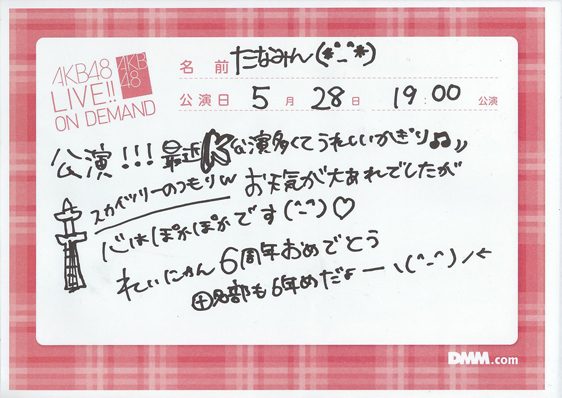 AKB48
LIVE!!
ON DEMAND
AKB
48
名 前 たなみん(*^_^*)
公演日 5月 28日 19:00 公演
公演!!! 最近K公演多くてうれしいかぎり♫〃
スカイツリーのつもりw お天気が大あれでしたが
心はぽかぽかです(^-^)♡
れいにゃん6周年おめでとう
田名部も6年めだよー ヽ(^-^)ノ←
DMM.com